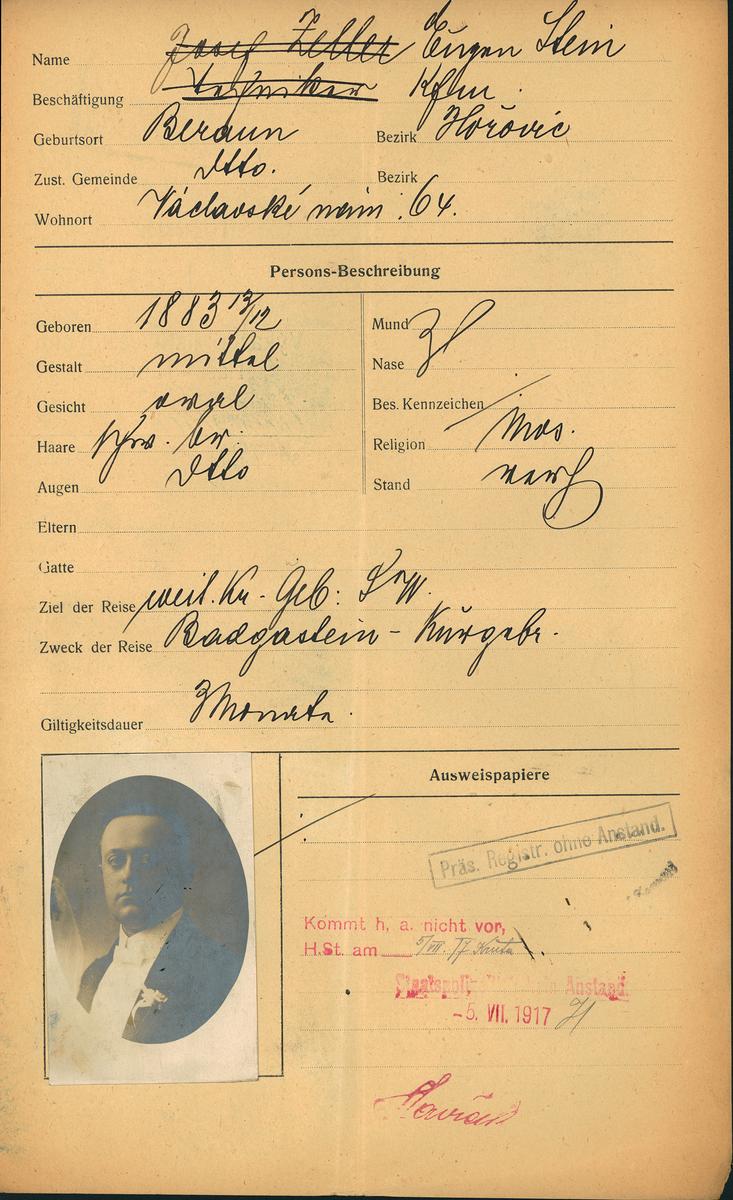 Name Josef Zeller Eugen Stein
Beschäftigung Techniker Kfm.
Geburtsort Beraun Bezirk Hořovic
Zust. Gemeinde dtto. Bezirk
Wohnort Václavské nám. 64.
Persons-Beschreibung
Geboren 1883 13/12 Mund
Gestalt mittel Nase
Gesicht oval Bes. Kennzeichen /
Haare schw. br. Religion mos.
Augen dtto Stand verh
Eltern
Gatte
Ziel der Reise weil. Kr. - Geb:
Zweck der Reise Badgastein - Kurgebr.
Giltigkeitsdauer 3 Monate.
Ausweispapiere
Präs. Registr. ohne Anstand.
Kommt h. a. nicht vor,
H.St. am 5/VII. 17
Staatspolizeilich kein Anstand.
-5. VII. 1917